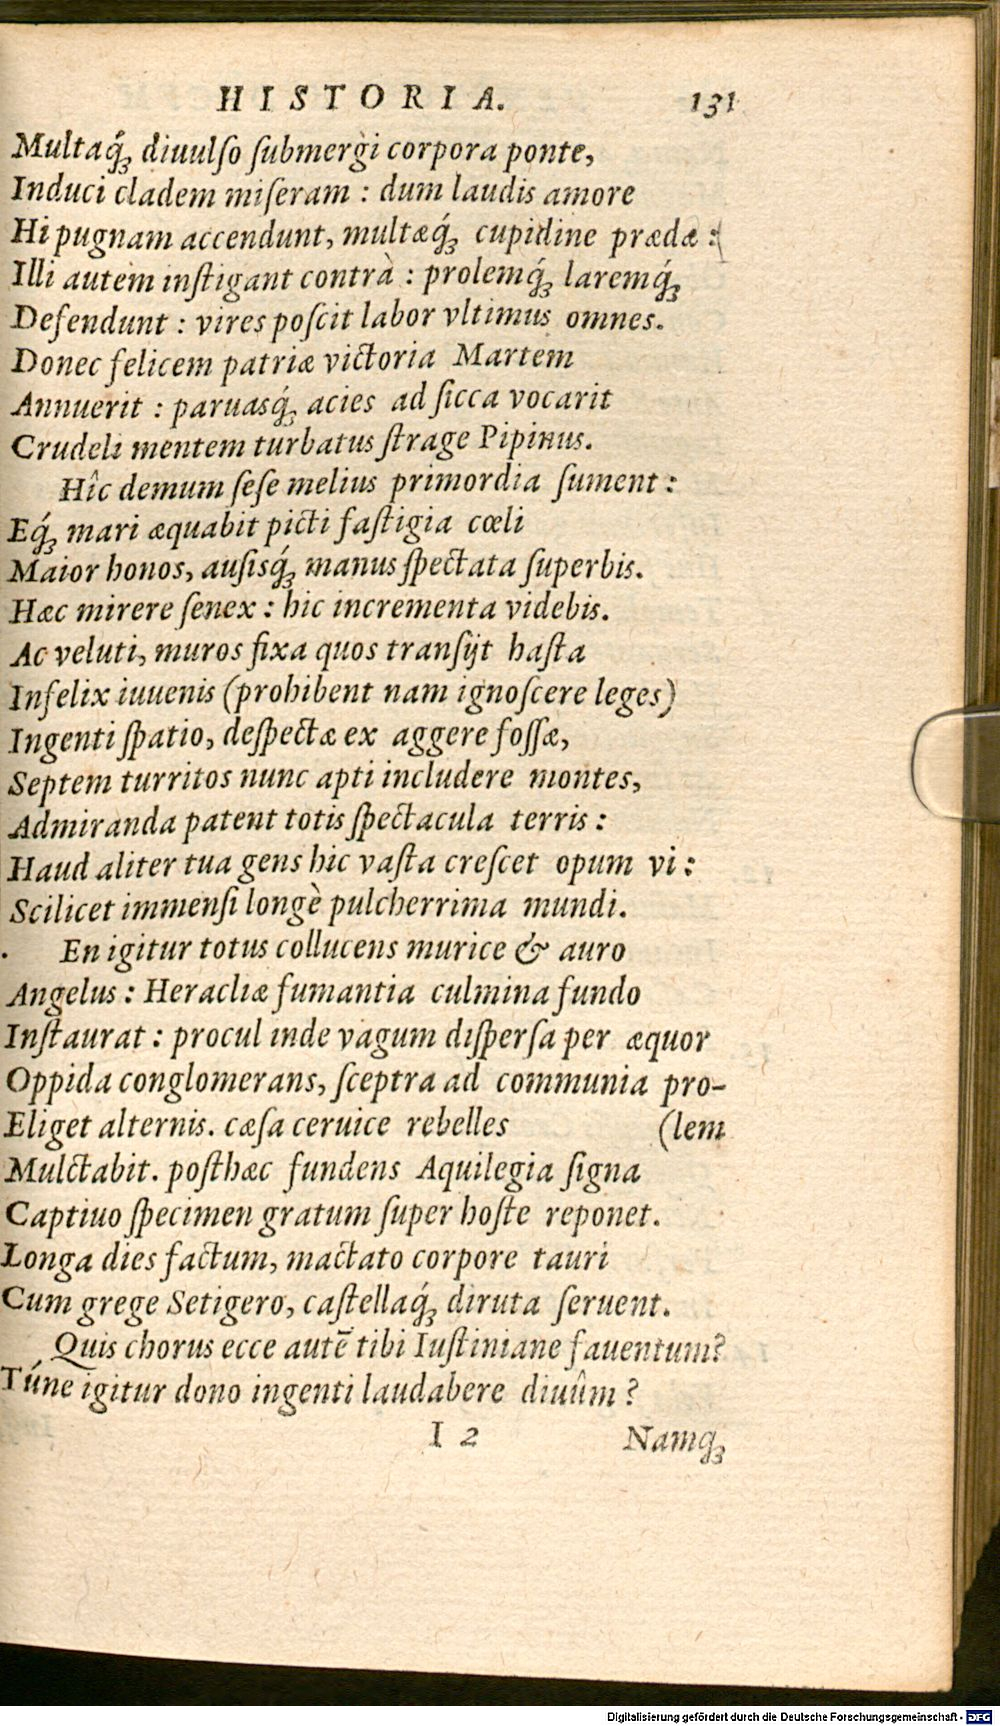 HISTORIA. 131
Multaq́ꝫ diuulſo ſubmergi corpora ponte,
Induci cladem miſeram : dum laudis amore
Hi pugnam accendunt, multæq́ꝫ cupidine prædæ :
Illi autem inſtigant contrà : prolemq́ꝫ laremq́ꝫ
Defendunt : vires poſcit labor vltimus omnes.
Donec felicem patriæ victoria Martem
Annuerit : paruasq́ꝫ acies ad ſicca vocarit
Crudeli mentem turbatus ſtrage Pipinus.
Hîc demum ſeſe melius primordia ſument :
Eq́ꝫ mari æquabit picti faſtigia cœli
Maior honos, auſisq́ꝫ manus ſpectata ſuperbis.
Hæc mirere ſenex : hic incrementa videbis.
Ac veluti, muros fixa quos tranſijt haſta
Infelix iuuenis (prohibent nam ignoſcere leges)
Ingenti ſpatio, deſpectæ ex aggere foſſæ,
Septem turritos nunc apti includere montes,
Admiranda patent totis ſpectacula terris :
Haud aliter tua gens hic vaſta creſcet opum vi :
Scilicet immenſi longè pulcherrima mundi.
En igitur totus collucens murice & auro
Angelus : Heracliæ fumantia culmina fundo
Inſtaurat : procul inde vagum diſperſa per æquor
Oppida conglomerans, ſceptra ad communia pro-
Eliget alternis. cæſa ceruice rebelles (lem
Mulctabit. poſthæc fundens Aquilegia ſigna
Captiuo ſpecimen gratum ſuper hoſte reponet.
Longa dies factum, mactato corpore tauri
Cum grege Setigero, caſtellaq́ꝫ diruta ſeruent.
Quis chorus ecce autē tibi Iuſtiniane fauentum?
Túne igitur dono ingenti laudabere diuûm ?
I 2 Namqꝫ
Digitalisierung gefördert durch die Deutsche Forschungsgemeinschaft - DFG